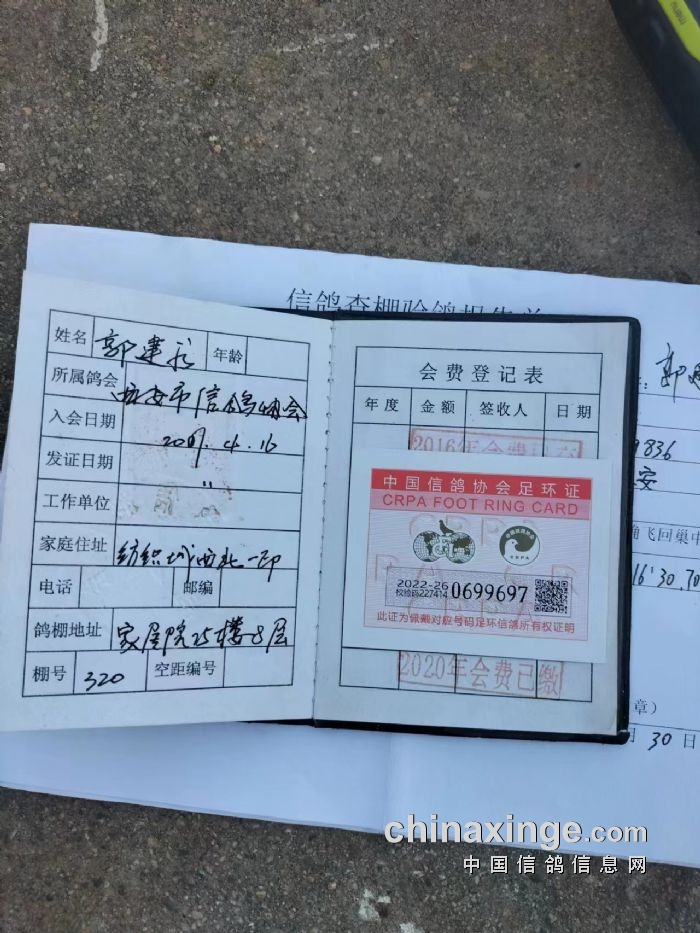 信鸽查棚验鸽报告单
姓名 郭建永 年龄
所属鸽会 西安市信鸽协会
入会日期 2009.4.16
发证日期 〃
工作单位
家庭住址 纺织城西北一印
电话 邮编
鸽棚地址 家属院25楼-8层
棚号 320 空距编号
会费登记表
年度 金额 签收人 日期
2016年会费已交
中国信鸽协会足环证
CRPA FOOT RING CARD
2022-26 0699697
校验码227414
此证为佩戴对应号码足环信鸽所有权证明
2020年会费已缴
: 郭
9836
安
飞回巢中
16'30.70
章）
月 30 日
chinaxinge.com
中国信鸽信息网